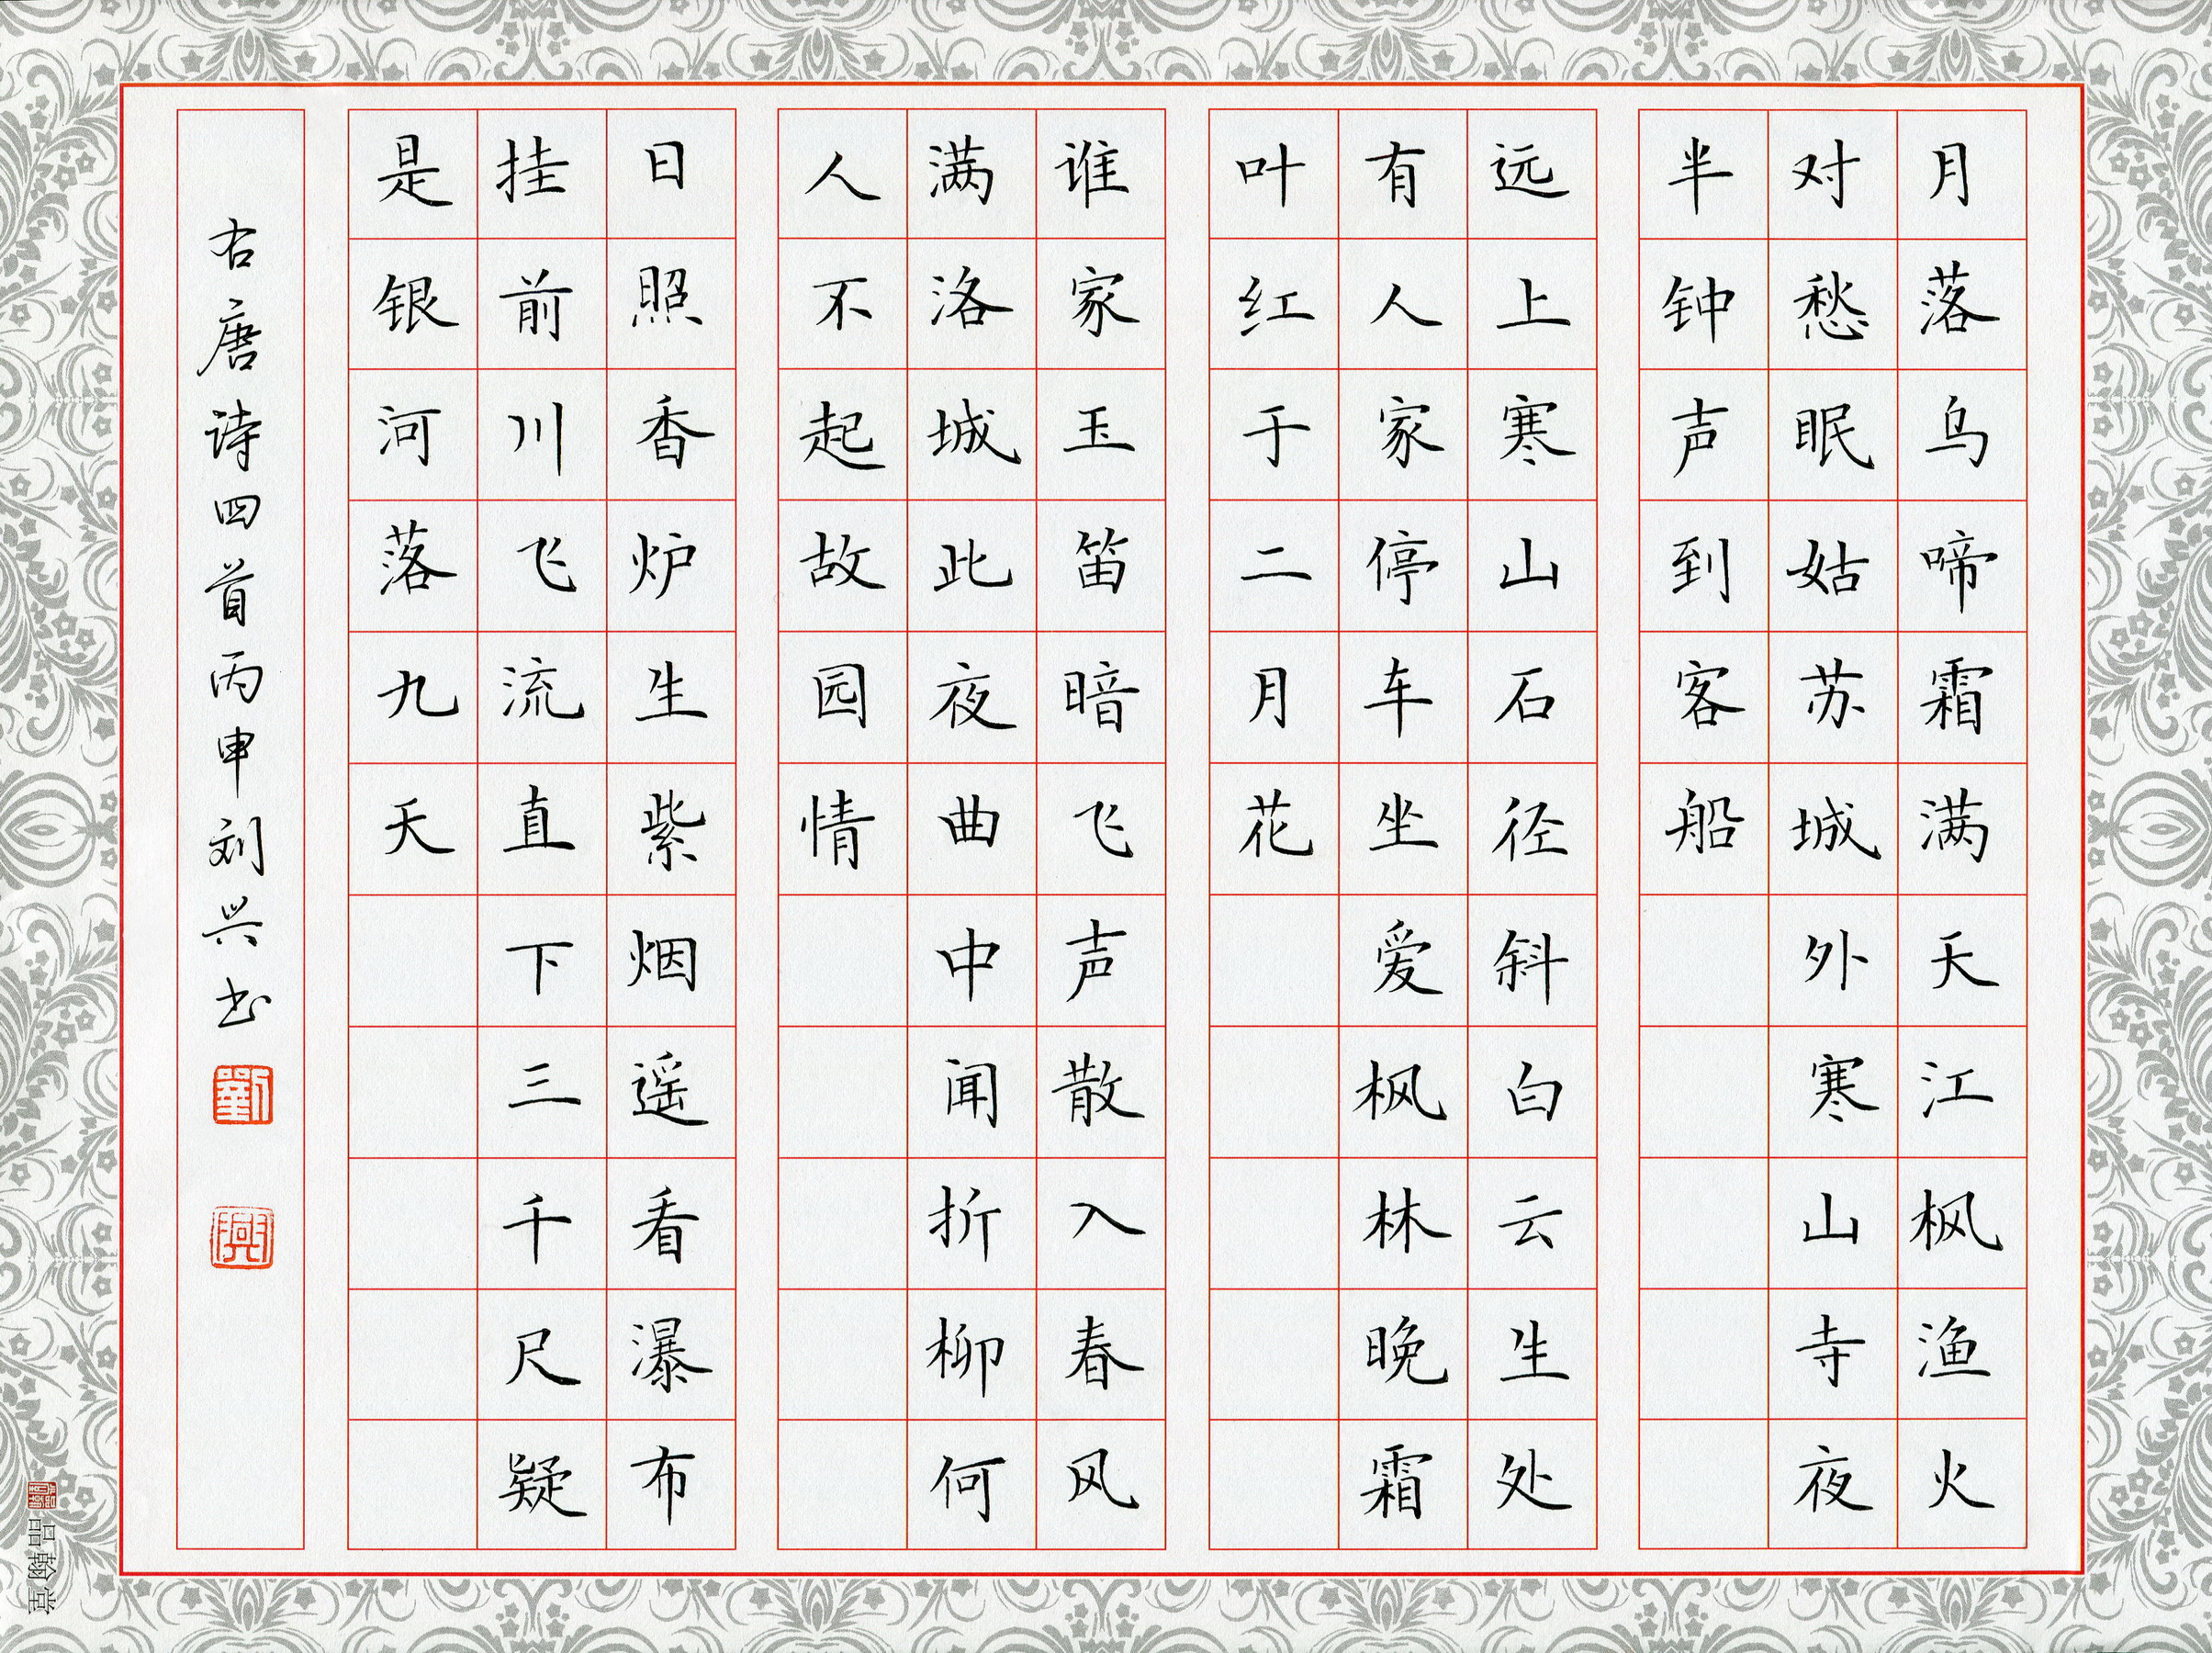 月落乌啼霜满天江枫渔火
对愁眠姑苏城外寒山寺夜
半钟声到客船
远上寒山石径斜白云生处
有人家停车坐爱枫林晚霜
叶红于二月花
谁家玉笛暗飞声散入春风
满洛城此夜曲中闻折柳何
人不起故园情
日照香炉生紫烟遥看瀑布
挂前川飞流直下三千尺疑
是银河落九天
右唐诗四首丙申刘兴书
劉
興
品翰堂